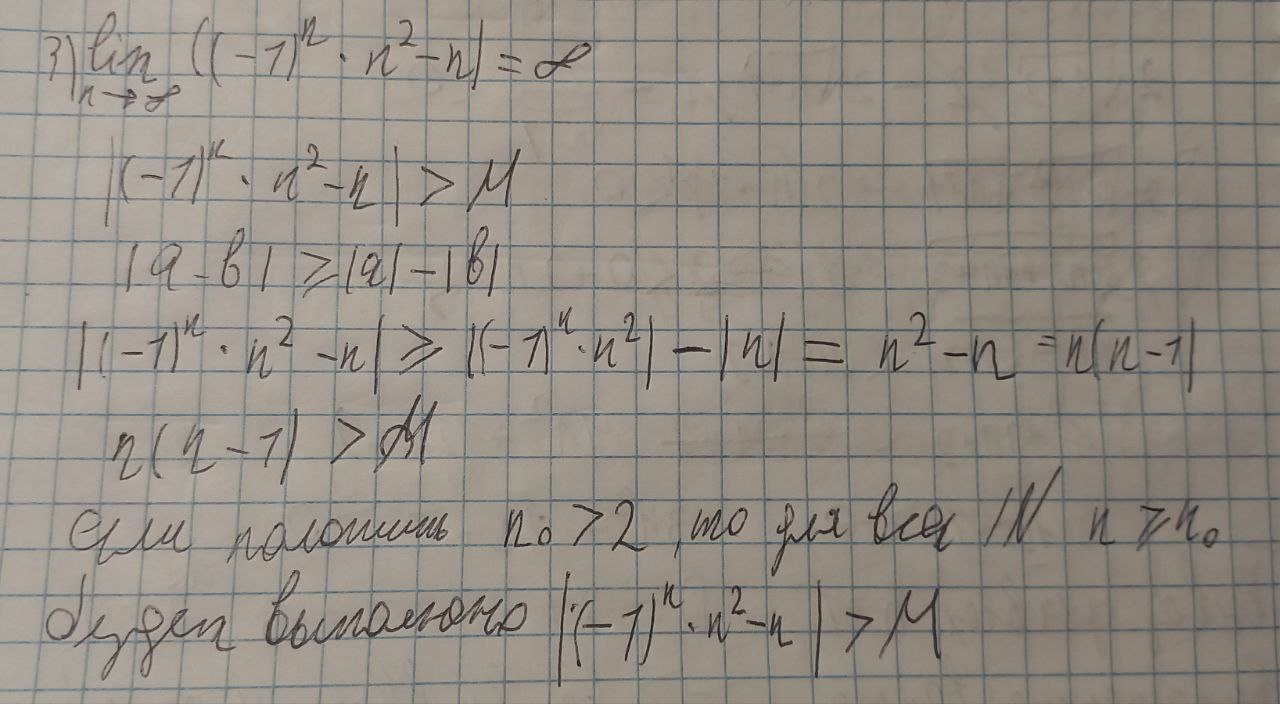 3) lim n→∞ ((-1)^n · n² - n) = ∞
|(-1)^n · n² - n| > M
|a - b| ≥ |a| - |b|
|(-1)^n · n² - n| ≥ |(-1)^n · n²| - |n| = n² - n = n(n-1)
n(n-1) > M
если положить n₀ > 2, то для всех ℕ n ≥ n₀
будет выполнено |(-1)^n · n² - n| > M